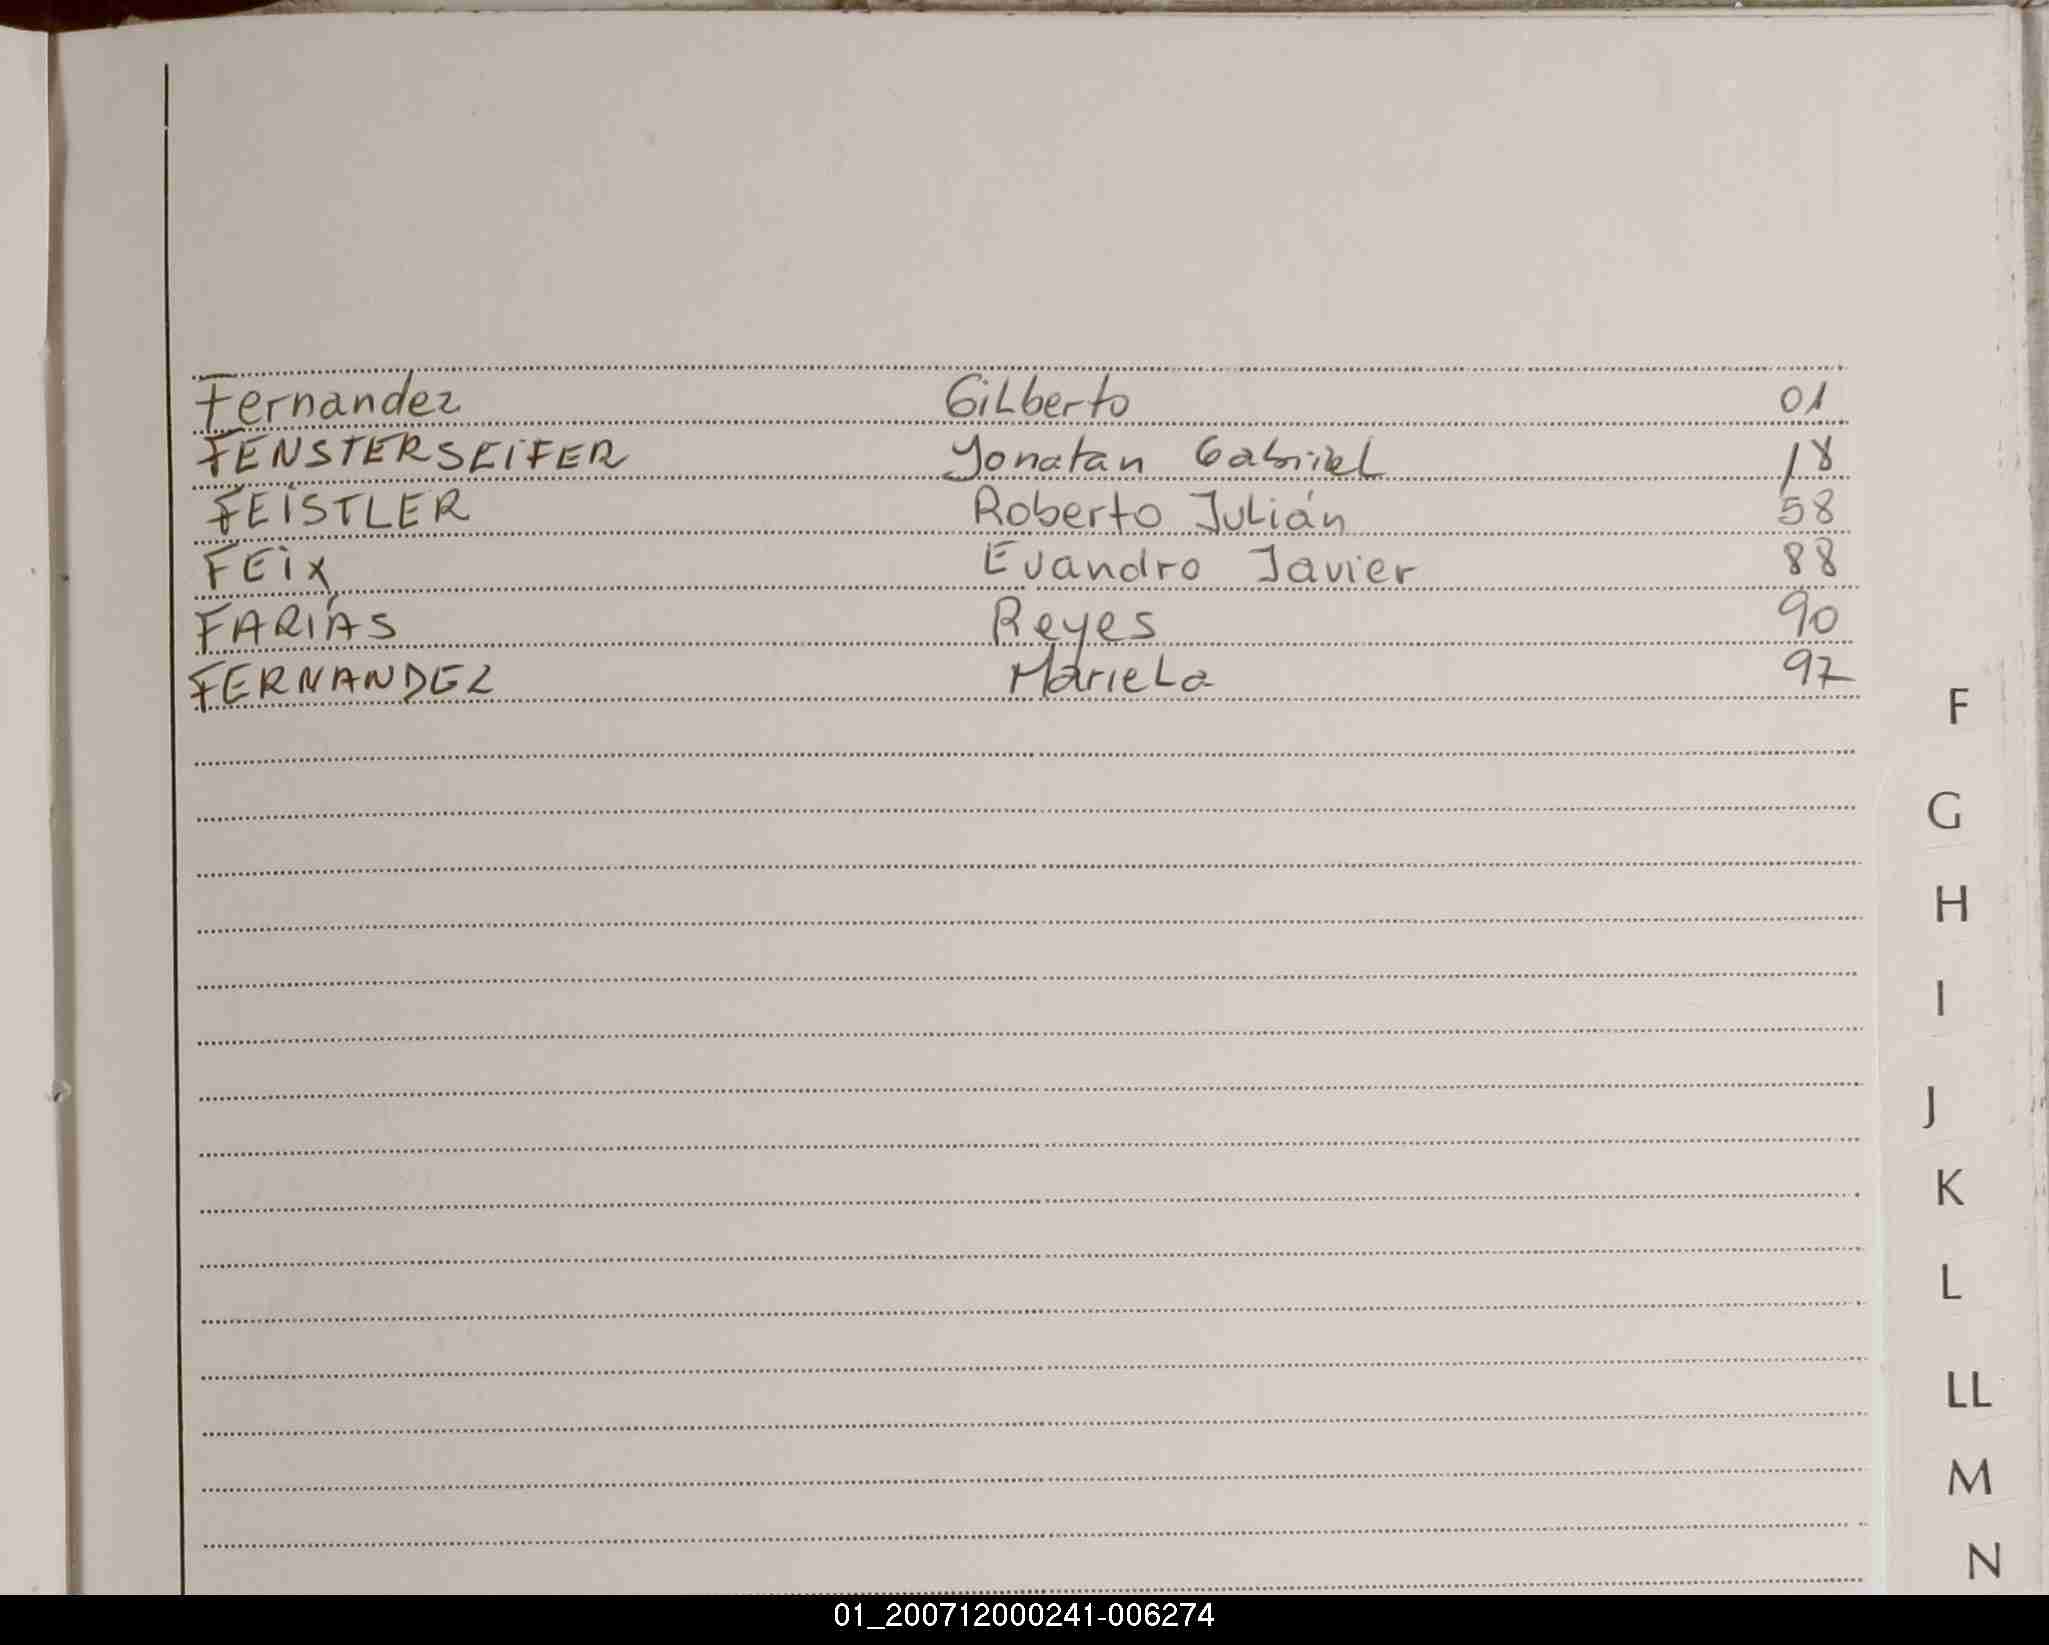 Fernandez Gilberto 01
FENSTERSEIFER Yonatan Gabriel 18
FEISTLER Roberto Julián 58
FEIX Evandro Javier 88
FARÍAS Reyes 90
FERNANDEZ Mariela 97
F
G
H
I
J
K
L
LL
M
N
01_200712000241-006274